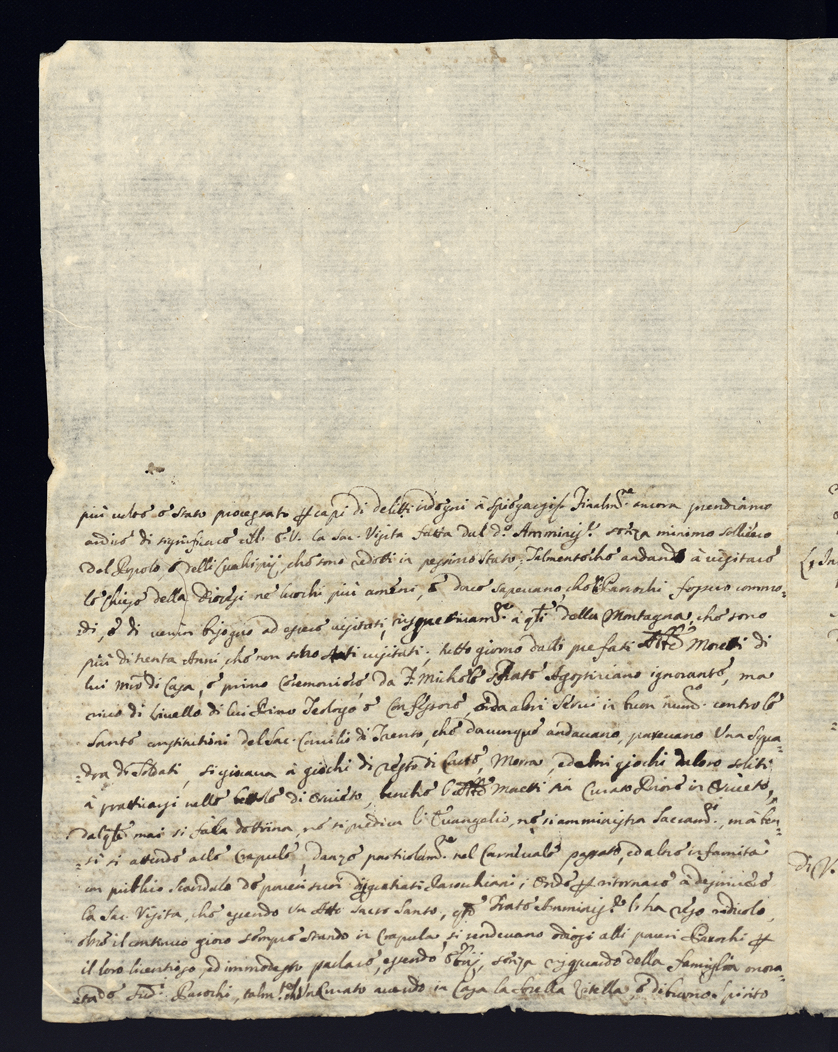 più volte è stato processato per capi di delitti indegni à spiegarsi. Finalm.te ancora prendiamo
ardire di significare all' E. V. la Sac. Visita fatta dal d.o Amminis.re senza minimo sollievo
del Popolo, e delli luoghi pij, che sono redotti in pessimo stato. Talmente che andando à visitare
le Chiese della Diocesi ne luochi più ameni, e dove sapevano che i Parochi fossero commo=
di, e di verun bisogno ad essere visitati, rispettivam.te à q.lli della Montagna che sono
più di trenta Anni, che non sono stati visitati; tutto giorno dalli prefati Moretti di
lui m.ro di Casa, e primo Ceremoniere da F. Michele Frate Agostiniano ignorante, ma
di livello di lui Primo Teologo e Confessore, e da altri Servi in buon num.o contro le
Sante constitutioni del Sac. Concilio di Trento, che dovunque andavano, parevano una Squa=
=dra di Soldati, si giocava à giochi di resto di Carte, Morra, ed altri giochi da loro soliti
à pratticarsi nelle bettole di Orvieto, benche l'Ab.te Moretti sia Curato Priore in Orvieto,
dal q.le mai si fa la dottrina, ne si predica li Evangelio, ne si amministra Sacram.ti, mà ben=
=sì si attende alle Crapule, danze particolarm.te nel Carnevale passato, ed altre infamità
in publico Scandalo de poveri suoi Parochiani; Onde per ritornare à descrivere
la Sac. Visita, che essendo un Atto Sacro Santo, q.sto Frate Amminis.re l'ha reso ridicolo,
oltre il continuo gioco sempre stando in Crapula, si rendevano odiosi alli poveri Parochi per
il loro licentioso, ed immodesto parlare, essendo senza risguardo della famiglia onora=
=ta de Sud.i Parochi, talm.te che un Curato avendo in Casa la Sorella Zitella, e di buono Spirito